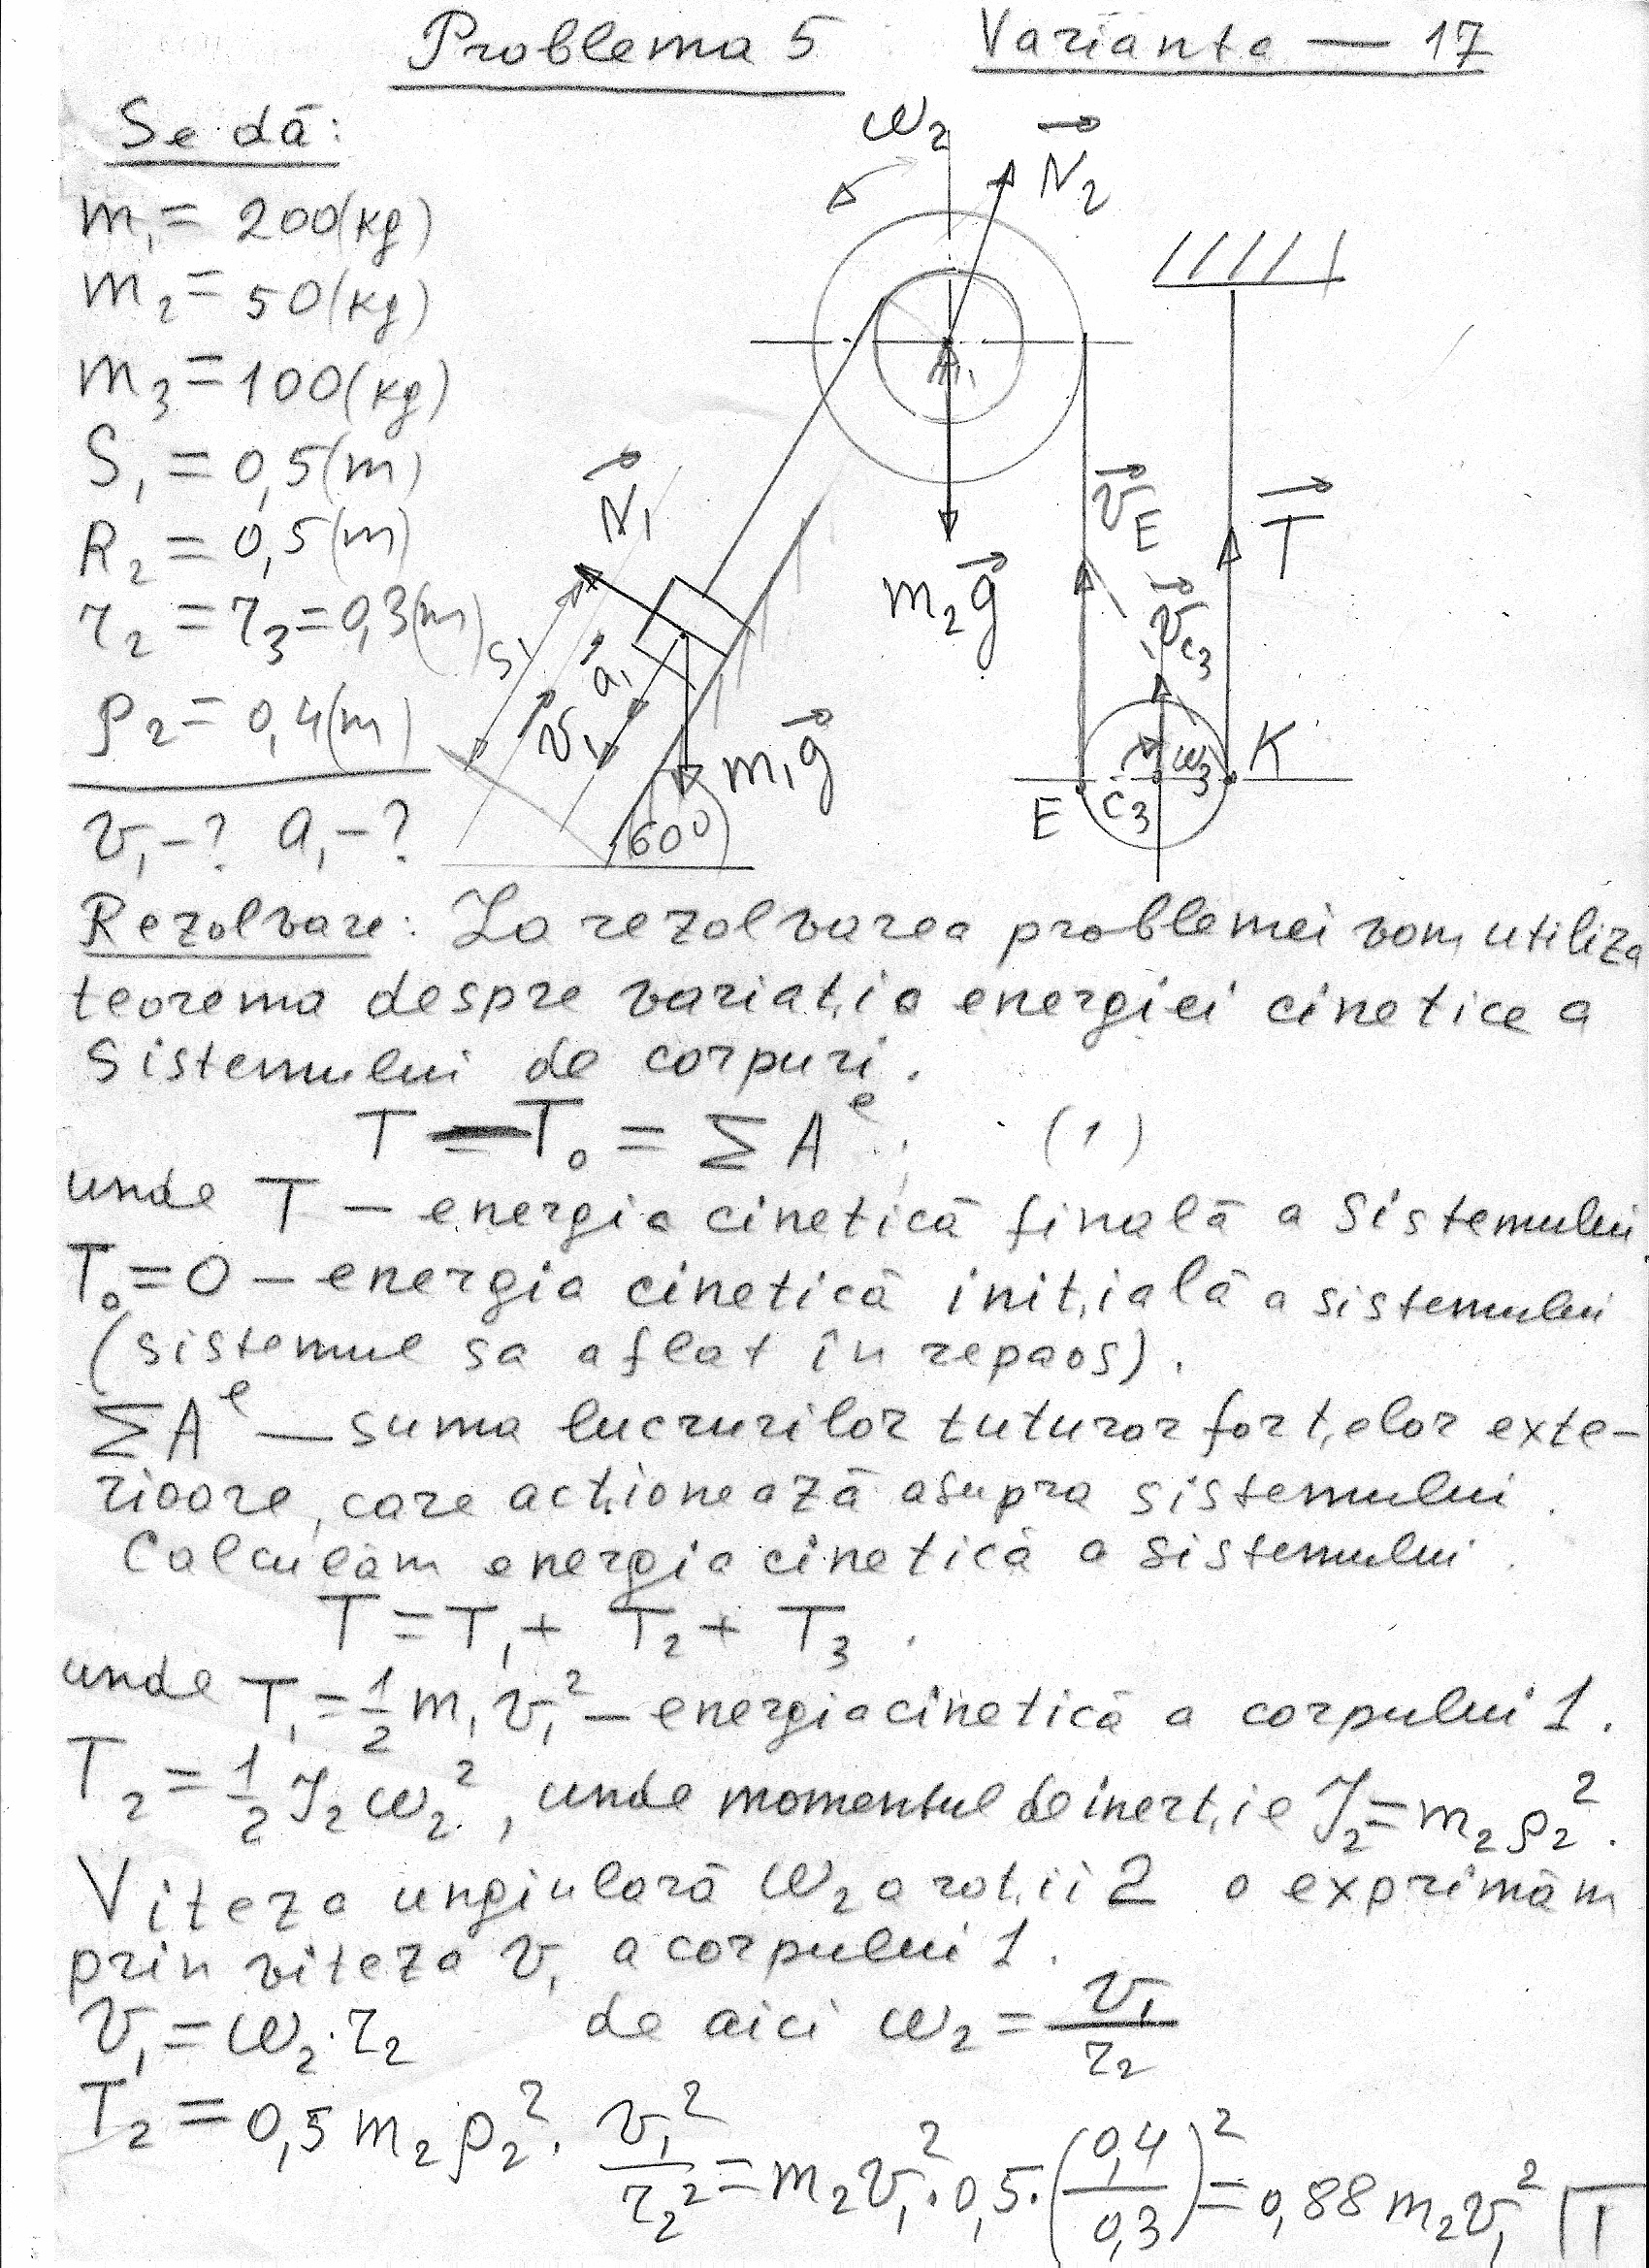 Problema 5 Varianta — 17
Se dă:
m₁ = 200(kg)
m₂ = 50(kg)
m₃ = 100(kg)
S₁ = 0,5(m)
R₂ = 0,5(m)
r₂ = r₃ = 0,3(m)
ρ₂ = 0,4(m)
v₁ - ? a₁ - ?
ω₂
N₂
N₁
S₁
a₁
v₁
m₁g
60°
m₂g
v_E
T
v_C₃
ω₃
K
E
C₃
Rezolvare: La rezolvarea problemei vom utiliza
teorema despre variația energiei cinetice a
sistemului de corpuri.
T — T₀ = ΣAᵉ; (1)
unde T — energia cinetică finală a sistemului
T₀ = 0 — energia cinetică inițială a sistemului
(sistemul sa aflat în repaos).
ΣAᵉ — suma lucrurilor tuturor forțelor exte-
rioare, care acționează asupra sistemului.
Calculăm energia cinetică a sistemului.
T = T₁ + T₂ + T₃.
unde T₁ = 1/2 m₁v₁² — energia cinetică a corpului 1.
T₂ = 1/2 J₂ω₂², unde momentul de inerție J₂ = m₂ρ₂².
Viteza ungiulară ω₂ a roții 2 o exprimăm
prin viteza v₁ a corpului 1.
v₁ = ω₂·r₂ de aici ω₂ = v₁/r₂
T₂ = 0,5 m₂ρ₂² · v₁²/r₂² = m₂v₁²·0,5·(0,4/0,3)² = 0,88 m₂v₁²